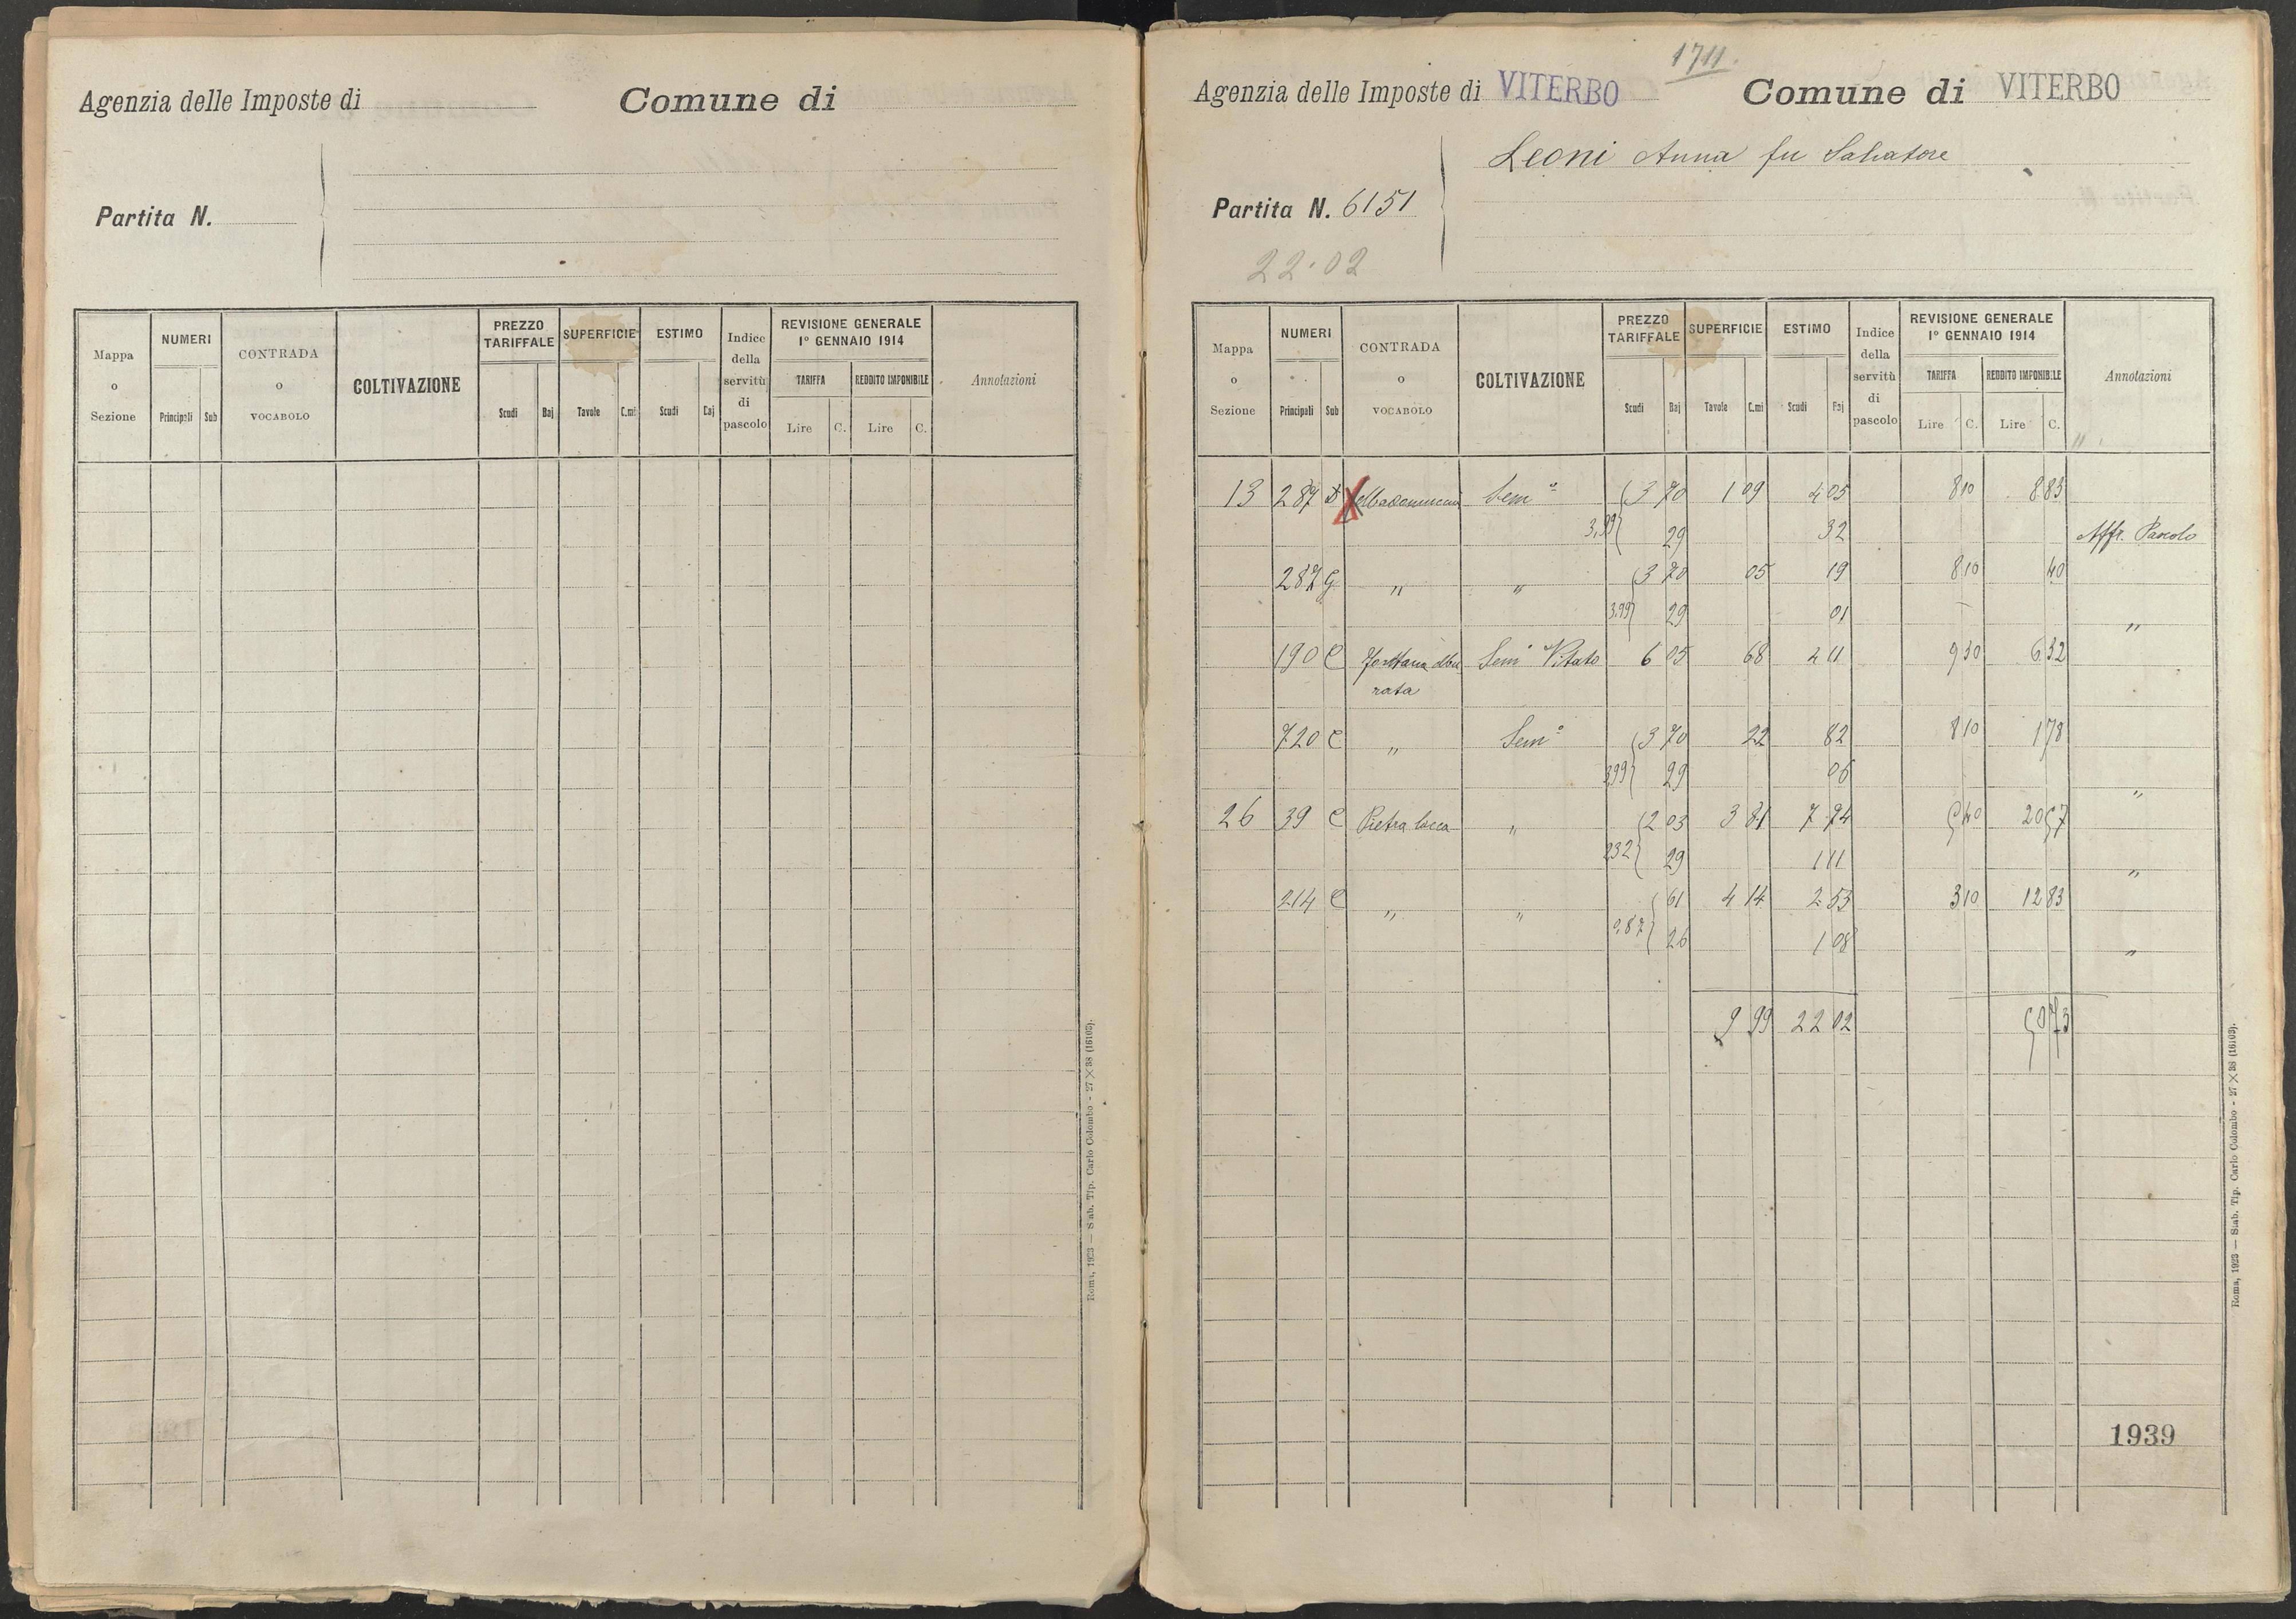 Agenzia delle Imposte di
Comune di
Partita N.
Mappa o Sezione
NUMERI
Principali Sub
CONTRADA o VOCABOLO
COLTIVAZIONE
PREZZO TARIFFALE
Scudi Baj
SUPERFICIE
Tavole C.mi
ESTIMO
Scudi Baj
Indice della servitù di pascolo
REVISIONE GENERALE
1° GENNAIO 1914
TARIFFA REDDITO IMPONIBILE
Lire C. Lire C.
Annotazioni
Roma, 1923 — Stab. Tip. Carlo Colombo - 27 × 38 (16103).
1711.
Agenzia delle Imposte di VITERBO Comune di VITERBO
Leoni Anna fu Salvatore
Partita N. 6151
22.02
Mappa o Sezione
NUMERI
Principali Sub
CONTRADA o VOCABOLO
COLTIVAZIONE
PREZZO TARIFFALE
Scudi Baj
SUPERFICIE
Tavole C.mi
ESTIMO
Scudi Baj
Indice della servitù di pascolo
REVISIONE GENERALE
1° GENNAIO 1914
TARIFFA REDDITO IMPONIBILE
Lire C. Lire C.
Annotazioni
13 287 X Sem° 3 70 1 09 4 05 8 10 8 83
3,99 29 32 Affr. Pascolo
287 g " " 3 70 05 19 8 10 40
3.99 29 01 "
190 C Sem° Vitato 6 05 68 4 11 9 30 6 32
rata
720 C " Sem° 3 70 22 82 8 10 1 78
399 29 06 "
26 39 C Pietra " 2 03 3 81 7 74 5 40 20 57
232 29 1 11 "
214 C " " 61 4 14 2 53 3 10 12 83
0.87 26 1 08 "
9 99 22 02 50 73
1939
Roma, 1923 — Stab. Tip. Carlo Colombo - 27 × 38 (16103).